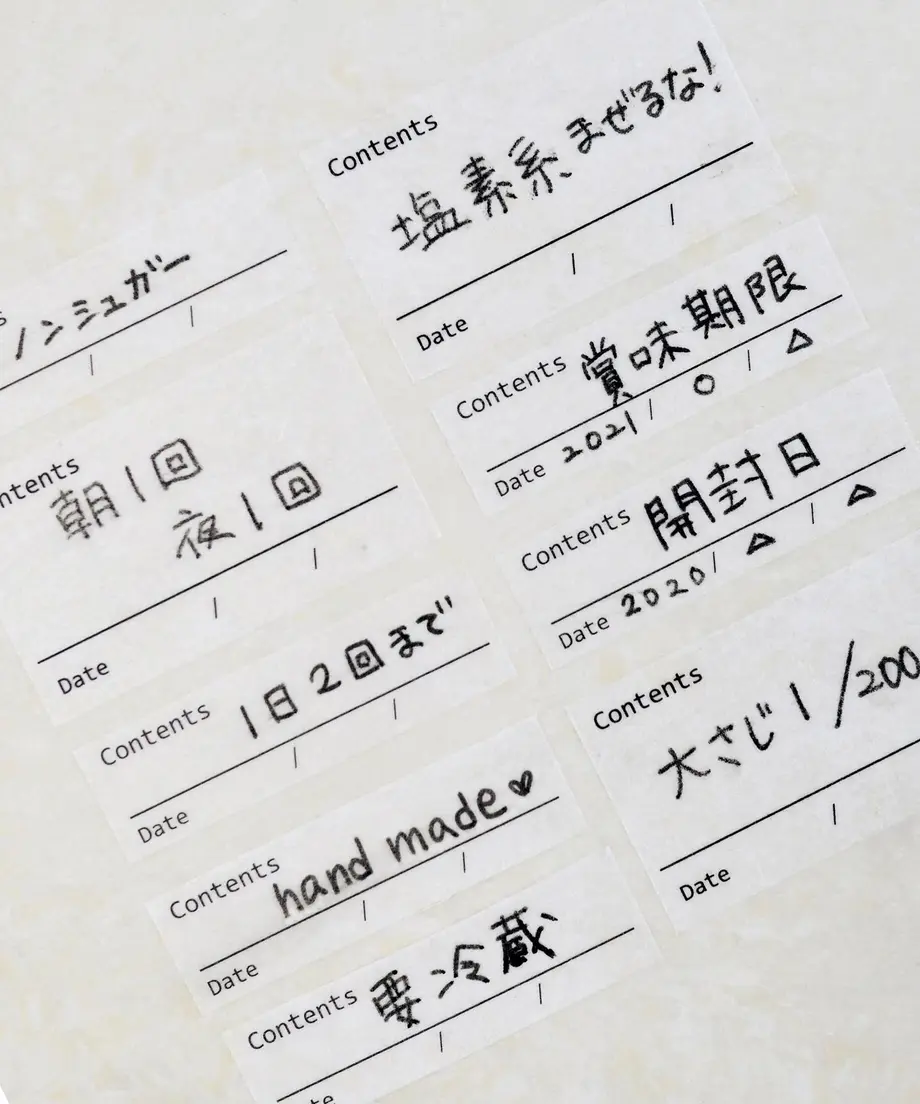 ノンシュガー
/ /
Contents
朝1回
夜1回
/ /
Date
Contents
1日2回まで
/ /
Date
Contents
hand made♥
/ /
Date
Contents
要冷蔵
/ /
Contents
塩素系まぜるな!
/ /
Date
Contents
賞味期限
Date 2021/ ○ / △
Contents
開封日
Date 2020/ △ / △
Contents
大さじ1/200
/
Date